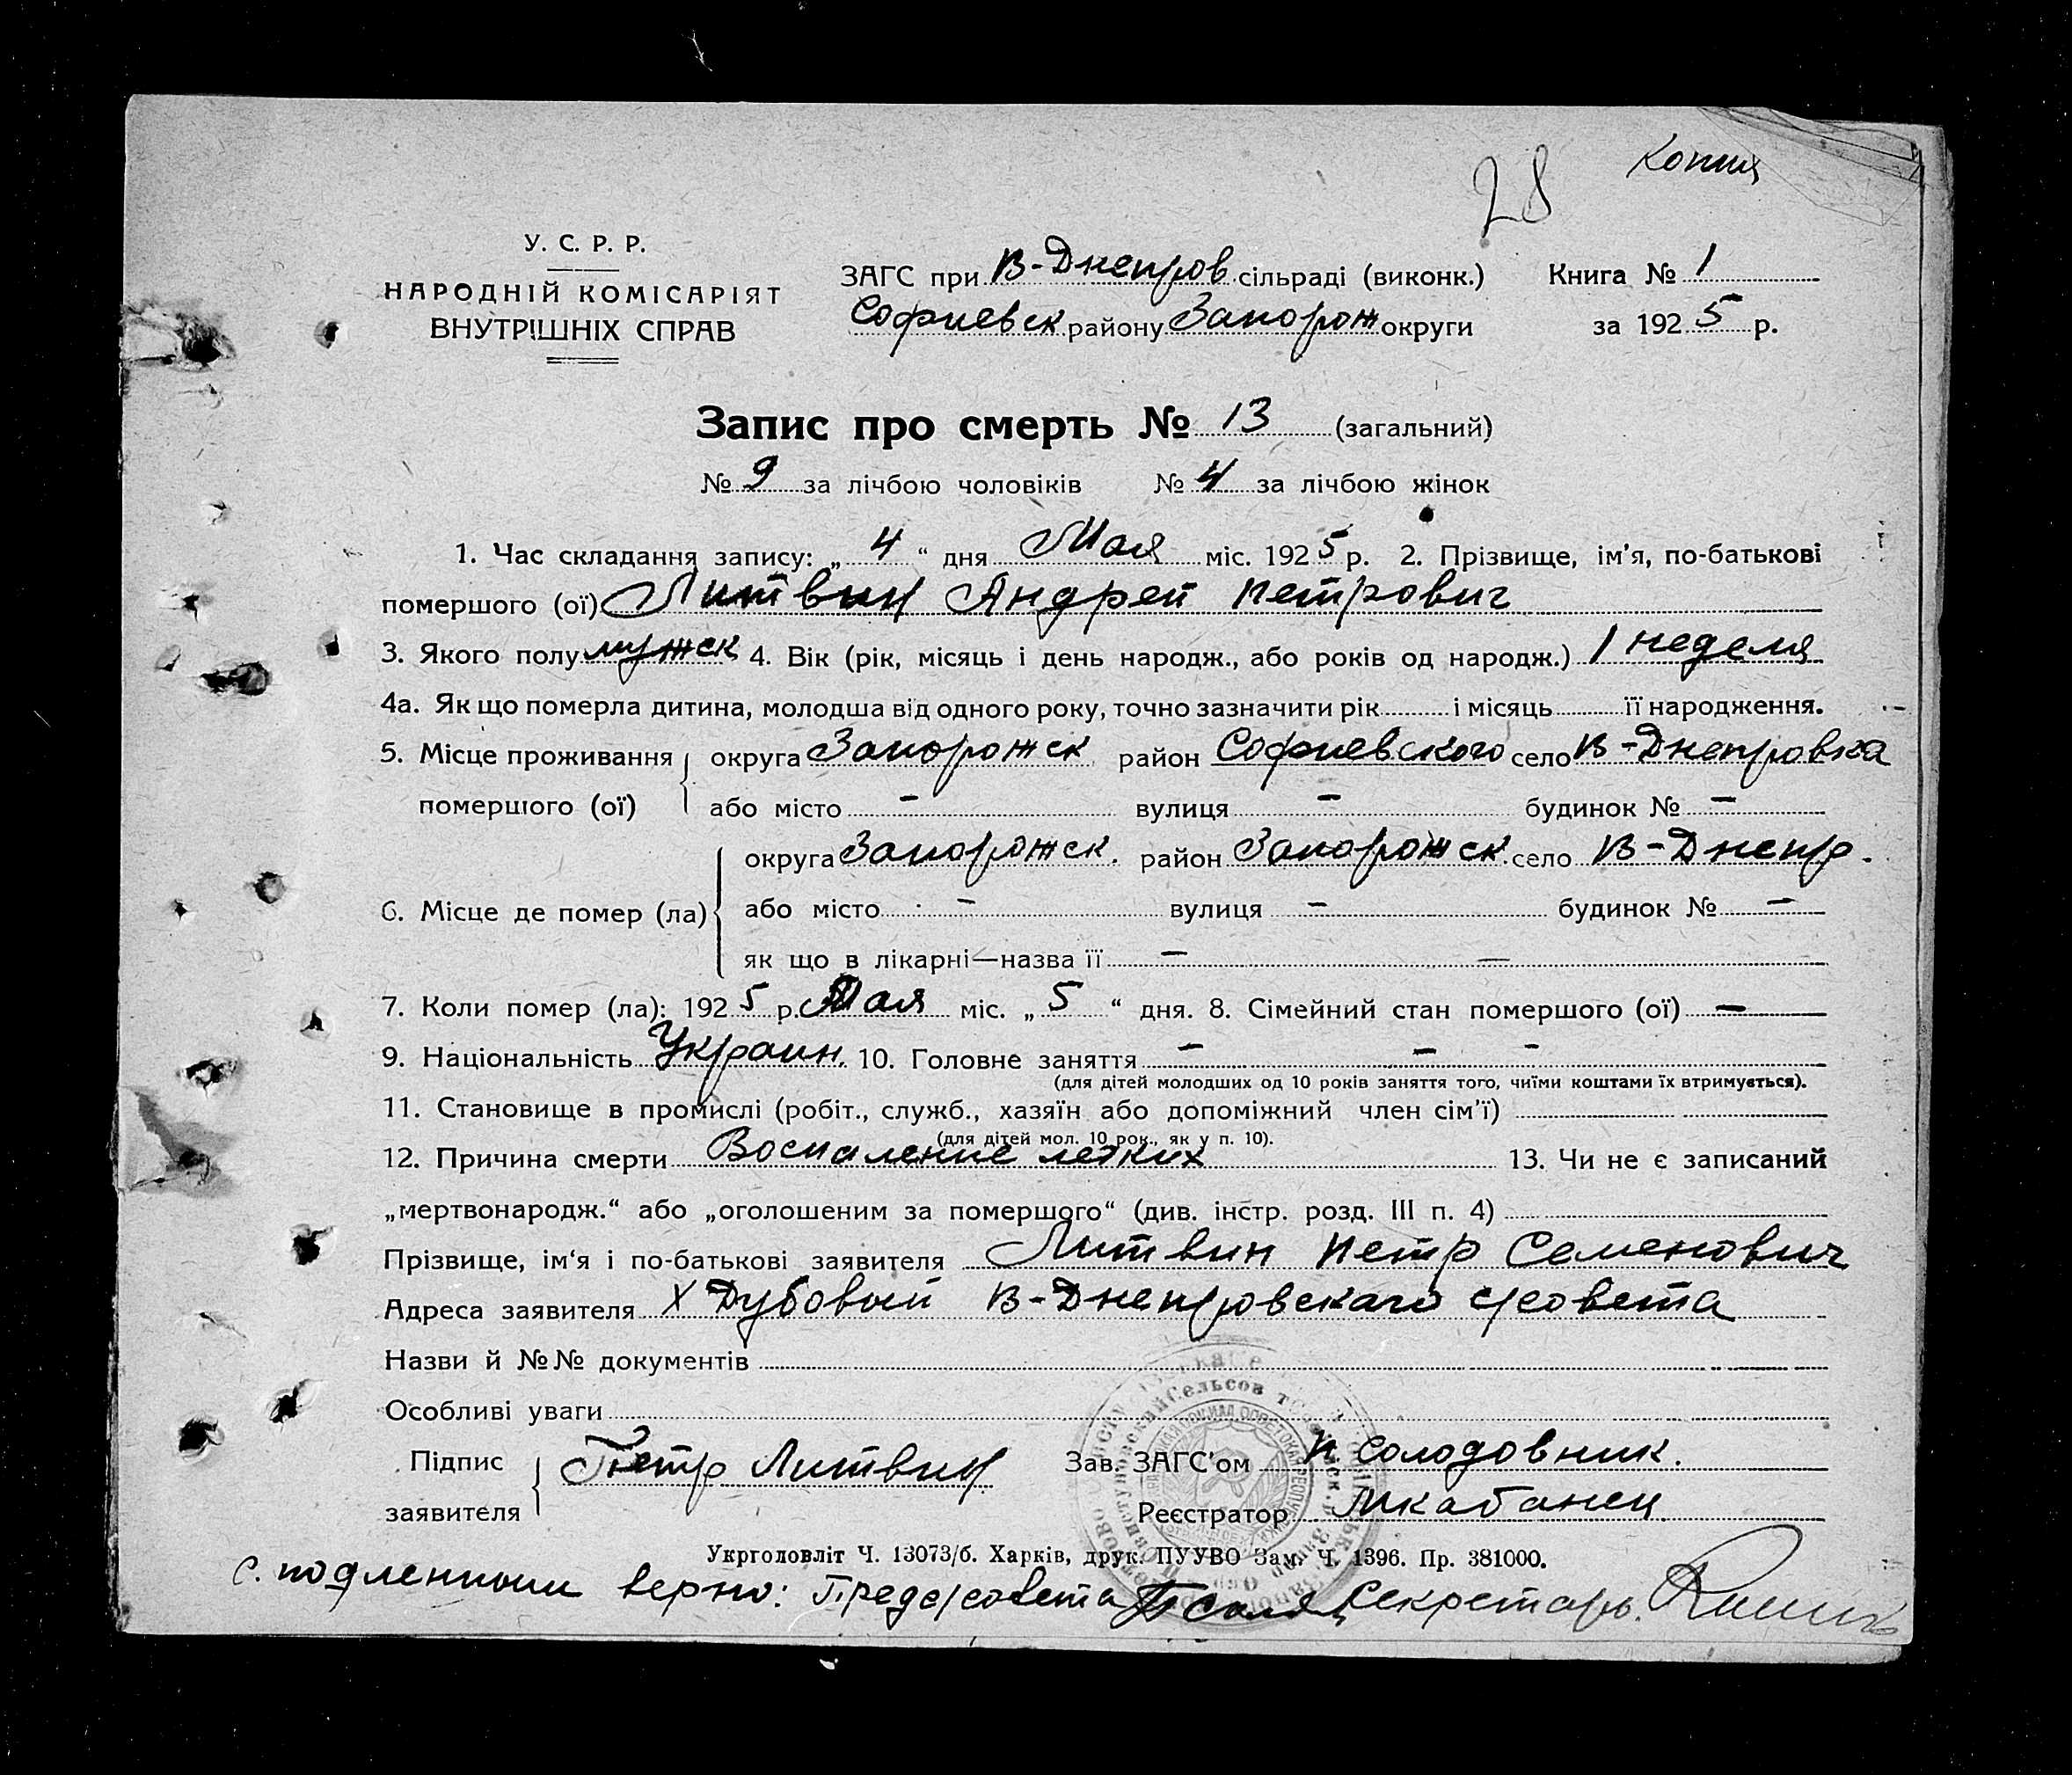 Копия
28
У. С. Р. Р.
НАРОДНІЙ КОМІСАРІЯТ
ВНУТРІШНІХ СПРАВ
ЗАГС при В-Днепров сільраді (виконк.) Книга № 1
Софиевск району Запорож округи за 1925 р.
Запис про смерть № 13 (загальний)
№ 9 за лічбою чоловіків № 4 за лічбою жінок
1. Час складання запису: „4“ дня Мая міс. 1925 р. 2. Прізвище, ім'я, по-батькові
помершого (ої) Литвин Андрей Петрович
3. Якого полу мужск 4. Вік (рік, місяць і день народж., або років од народж.) 1 неделя
4а. Як що померла дитина, молодша від одного року, точно зазначити рік і місяць її народження.
5. Місце проживання помершого (ої) округа Запорожск район Софиевского село В-Днепровка
або місто — вулиця — будинок № —
6. Місце де помер (ла) округа Запорожск. район Запорожск. село В-Днепр.
або місто — вулиця — будинок № —
як що в лікарні—назва її — —
7. Коли помер (ла): 1925 р. Мая міс. „5“ дня. 8. Сімейний стан помершого (ої) —
9. Національність Украин. 10. Головне заняття — — —
(для дітей молодших од 10 років заняття того, чиїми коштами їх втримується).
11. Становище в промислі (робіт., служб., хазяїн або допоміжний член сім'ї)
(для дітей мол. 10 рок., як у п. 10).
12. Причина смерти Воспаление легких 13. Чи не є записаний
„мертвонародж.“ або „оголошеним за помершого“ (див. інстр. розд. III п. 4)
Прізвище, ім'я і по-батькові заявителя Литвин Петр Семенович
Адреса заявителя х Дубовый В-Днепровскаго с/совета
Назви й №№ документів
Особливі уваги
Підпис заявителя Петр Литвин Зав. ЗАГС'ом П Солодовник.
Реєстратор Мкабанец
Укрголовліт Ч. 13073/б. Харків, друк. ПУУВО Зам. Ч. 1396. Пр. 381000.
С. подленным верно: Пред с/совета Секретарь.